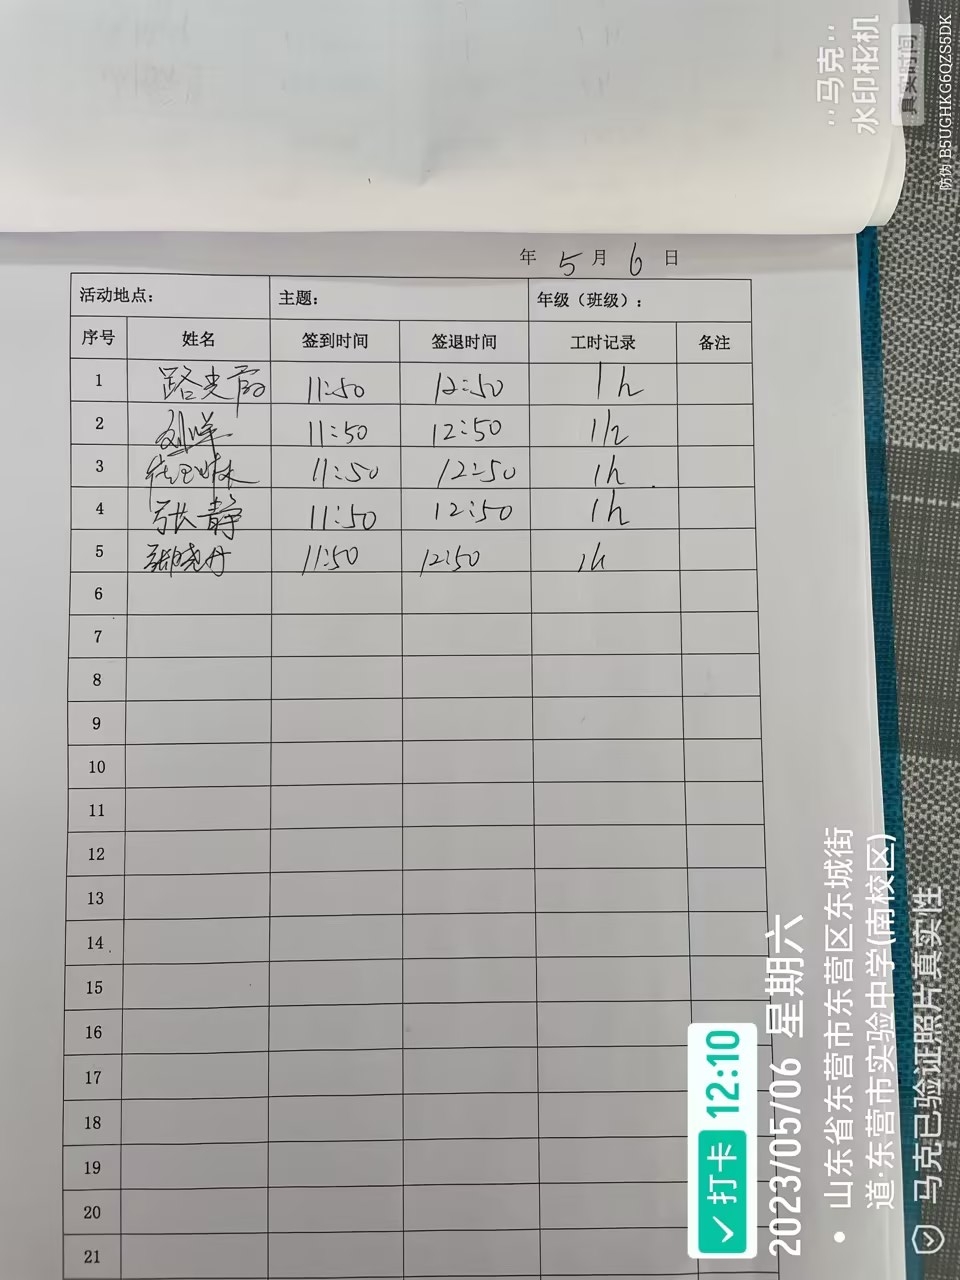 年 5 月 6 日
活动地点： 主题： 年级（班级）：
序号 姓名 签到时间 签退时间 工时记录 备注
1 11:50 12:50 1h
2 刘洋 11:50 12:50 1h
3 11:50 12:50 1h
4 张静 11:50 12:50 1h
5 张晓丹 11:50 12:50 1h
6
7
8
9
10
11
12
13
14
15
16
17
18
19
20
21
马克
水印相机
真实时间
防伪 B5UGHKG6QZS5DK
打卡 12:10
2023/05/06 星期六
山东省东营市东营区东城街
道·东营市实验中学(南校区)
马克已验证照片真实性